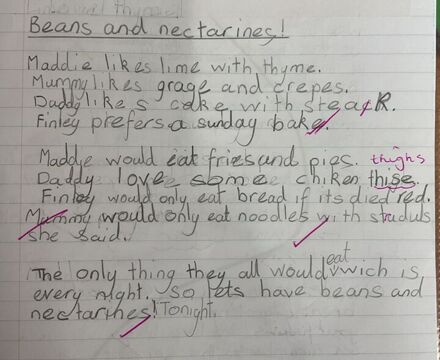 Beans and nectarines!
Maddie likes lime with thyme.
Mummy likes grage and crepes.
Daddy likes cake with steak.
Finley prefers a sunday bake.
Maddie would eat fries and pies. thighs
Daddy love some chiken thise.
Finley would only eat bread if its died red.
Mummy would only eat noodles with studuls
she said.
The only thing they all would eat wich is
every night. So lets have beans and
nectarines! Tonight.